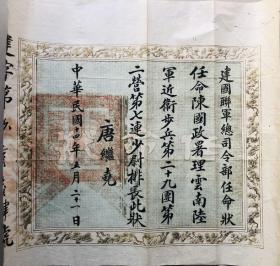 建國聯軍總司令部任命狀
任命陳國政署理雲南陸
軍近衛步兵第二十九團第
二營第七連少尉排長此狀
唐繼堯
中華民國十四年五月二十一日
建字第
號